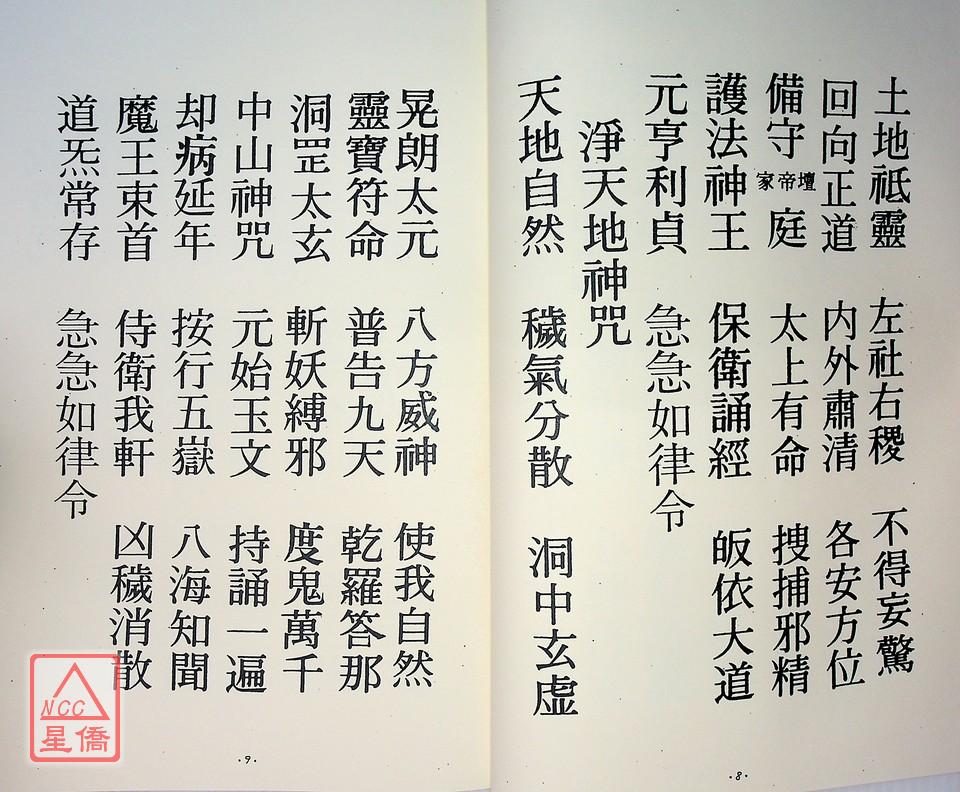 土地祗靈 左社右稷 不得妄驚
回向正道 內外肅清 各安方位
備守壇帝家庭 太上有命 搜捕邪精
護法神王 保衛誦經 皈依大道
元亨利貞 急急如律令
淨天地神咒
天地自然 穢氣分散 洞中玄虛
·8·
晃朗太元 八方威神 使我自然
靈寶符命 普告九天 乾羅答那
洞罡太玄 斬妖縛邪 度鬼萬千
中山神咒 元始玉文 持誦一遍
却病延年 按行五嶽 八海知聞
魔王束首 侍衛我軒 凶穢消散
道炁常存 急急如律令
·9·
NCC
星僑